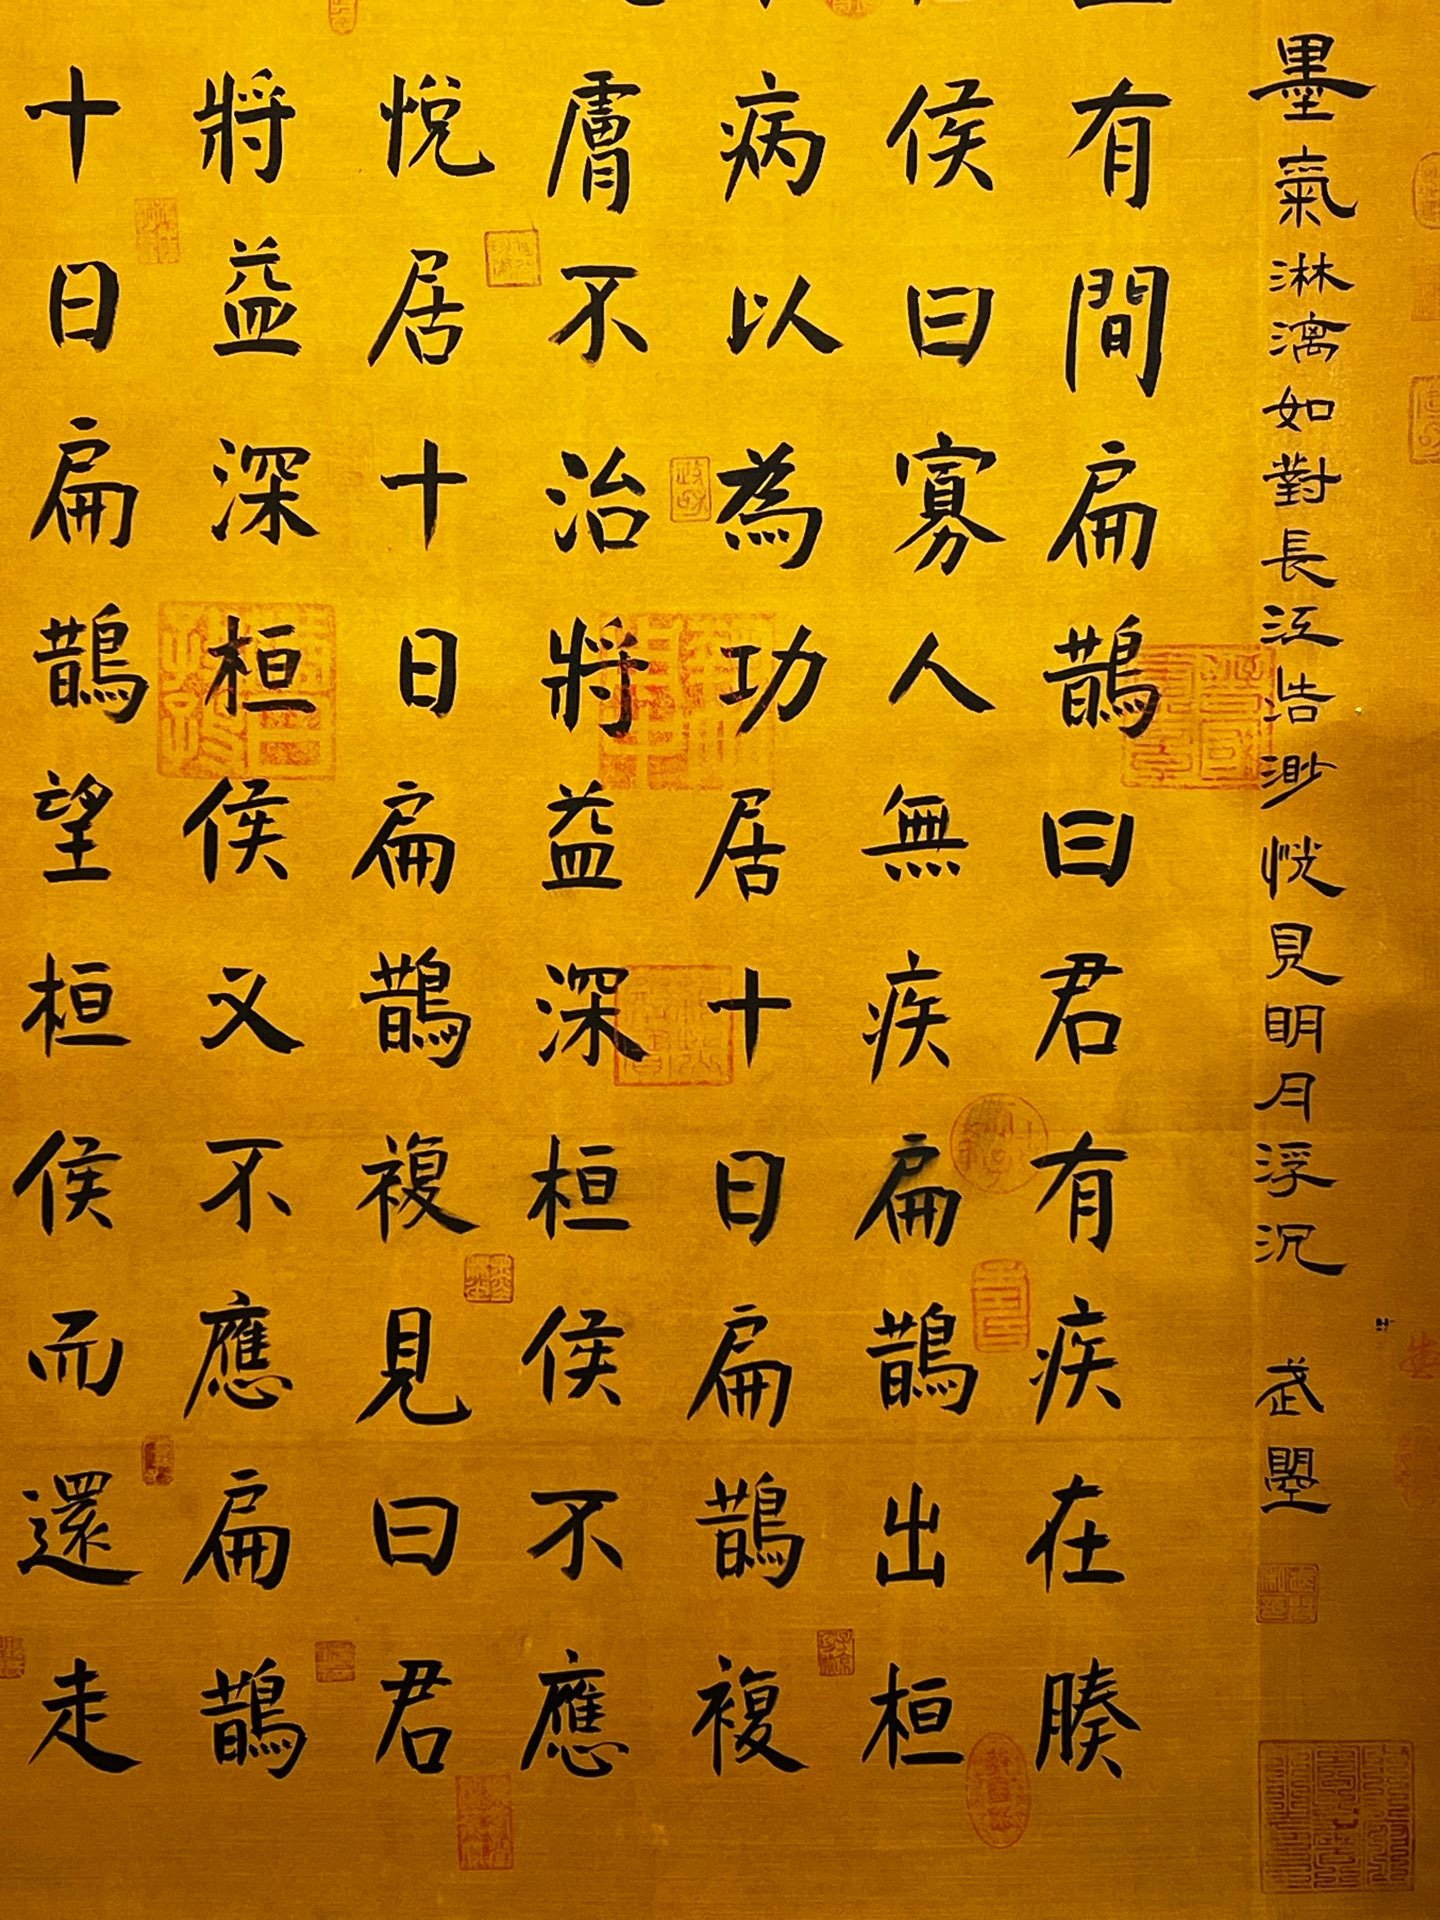 墨氣淋漓如對長江浩渺恍見明月浮沉 武曌
有間扁鵲曰君有疾在腠
侯曰寡人無疾扁鵲出桓
病以為功居十日扁鵲複
膚不治將益深桓侯不應
悅居十日扁鵲複見曰君
將益深桓侯又不應扁鵲
十日扁鵲望桓侯而還走